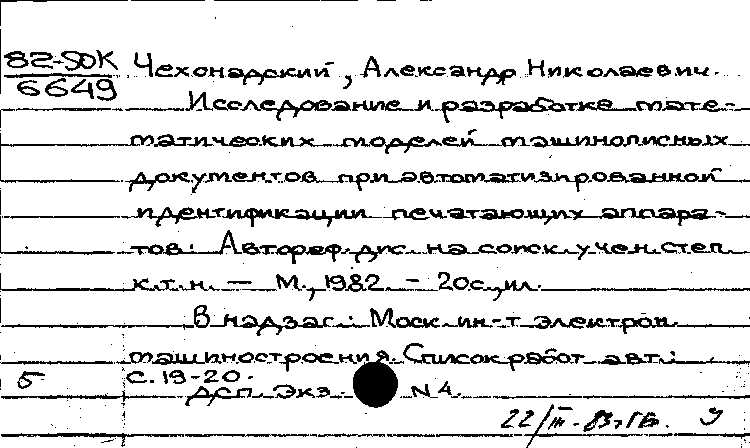 82-5ОК Чехонадский, Александр Николаевич.
6649
Исследование и разработке мате-
матических моделей машинописных
документов при автоматизированной
идентификации печатающих аппара-
тов: Автореф. дис. на соиск. учен. степ.
к.т.н. — М., 1982. – 20с., ил.
В надзаг.: Моск. ин-т электрон.
машиностроения. Список работ авт.:
5 с. 19-20.
ДСП. Экз. N 4.
22/III-83г.